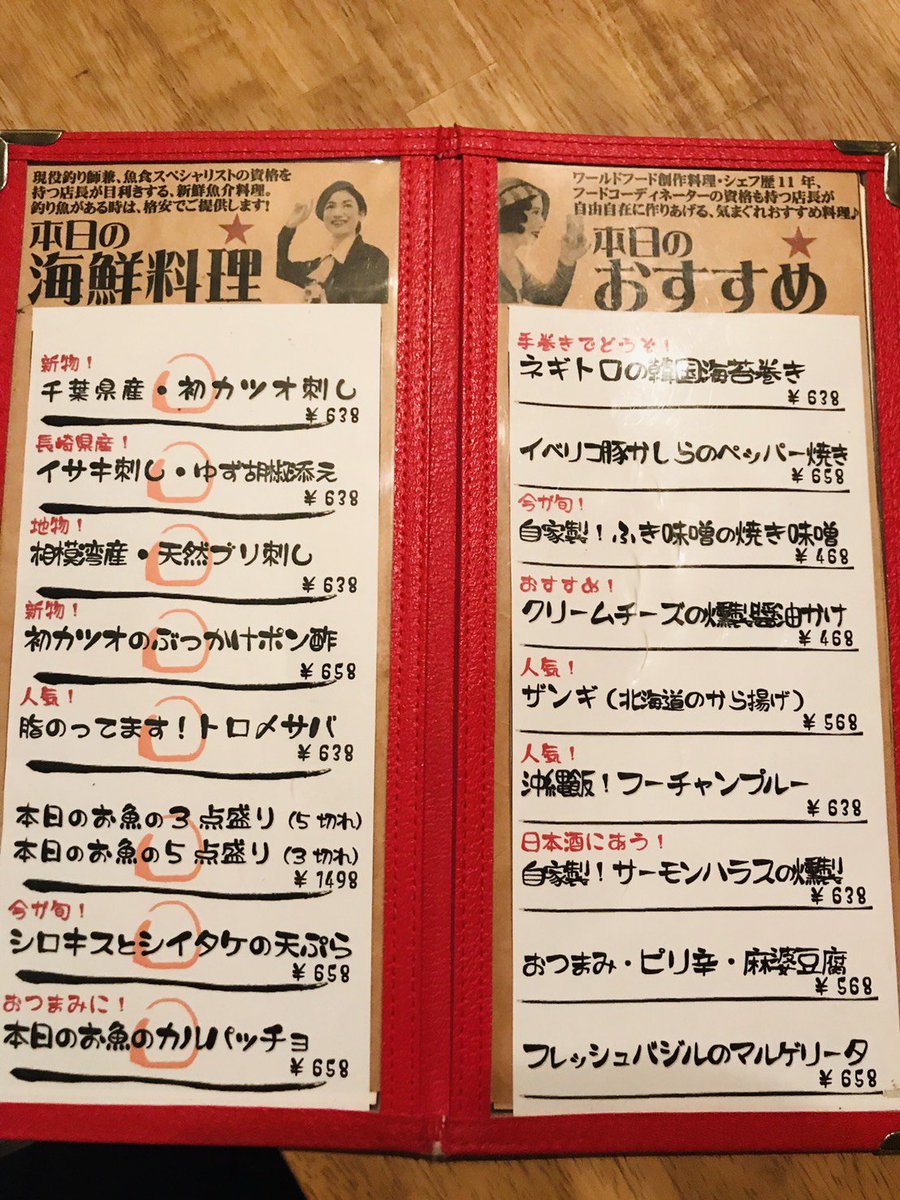 現役釣り師兼、魚食スペシャリストの資格を
持つ店長が目利きする、新鮮魚介料理。
釣り魚がある時は、格安でご提供します!
本日の
海鮮料理
新物!
千葉県産・初カツオ刺し
¥638
長崎県産!
イサキ刺し・ゆず胡椒添え
¥638
地物!
相模湾産・天然ブリ刺し
¥638
新物!
初カツオのぶっかけポン酢
¥658
人気!
脂のってます!トロメサバ
¥638
本日のお魚の3点盛り(5切れ)
本日のお魚の5点盛り(3切れ)
¥1498
今が旬!
シロキスとシイタケの天ぷら
¥658
おつまみに!
本日のお魚のカルパッチョ
¥658
ワールドフード創作料理・シェフ歴11年、
フードコーディネーターの資格も持つ店長が
自由自在に作りあげる、気まぐれおすすめ料理♪
本日の
おすすめ
手巻きでどうぞ!
ネギトロの韓国海苔巻き
¥638
イベリコ豚かしらのペッパー焼き
¥658
今が旬!
自家製!ふき味噌の焼き味噌
¥468
おすすめ!
クリームチーズの燻製醤油かけ
¥468
人気!
ザンギ(北海道のから揚げ)
¥568
人気!
沖縄飯!フーチャンプルー
¥638
日本酒にあう!
自家製!サーモンハラスの燻製
¥638
おつまみ・ピリ辛・麻婆豆腐
¥568
フレッシュバジルのマルゲリータ
¥658